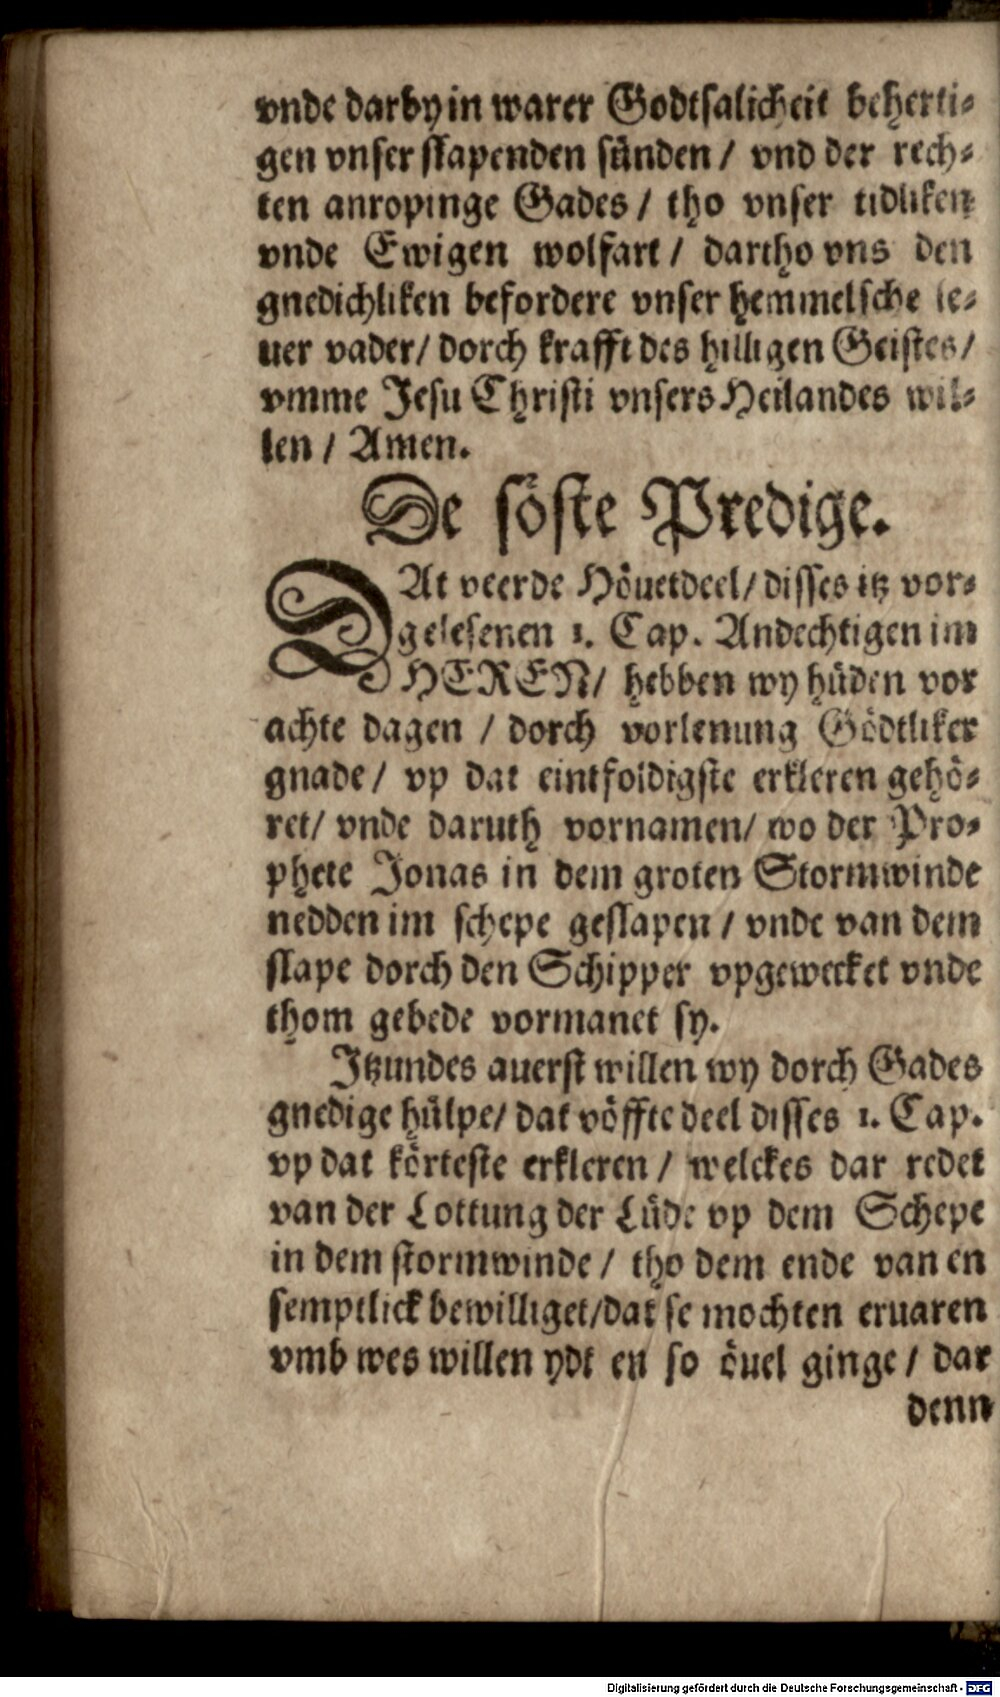 vnde darby in warer Godtsalicheit beherti-
gen vnser slapenden sünden / vnd der rech-
ten anropinge Gades / tho vnser tidtliken
vnde Ewigen wolfart / dartho vns den
gnedichliken befordere vnser hemmelsche le-
uer vader / dorch krafft des hilligen Geistes /
vmme Jesu Christi vnsers Heilandes wil-
len / Amen.
De söste Predige.
DAt veerde Höuetdeel / disses itz vor-
gelesenen 1. Cap. Andechtigen im
HEREN / hebben wy hüden vor
achte dagen / dorch vorlenung Gödtliker
gnade / vp dat eintfoldigste erkleren gehö-
ret / vnde daruth vornamen / wo der Pro-
phete Jonas in dem groten Stormwinde
nedden im schepe geslapen / vnde van dem
slape dorch den Schipper vpgewecket vnde
thom gebede vormanet sy.
Itzundes auerst willen wy dorch Gades
gnedige hülpe / dat vöffte deel disses 1. Cap.
vp dat körteste erkleren / welckes dar redet
van der Lottung der Lüde vp dem Schepe
in dem stormwinde / tho dem ende van en
semptlick bewilliget / dat se mochten eruaren
vmb wes willen ydt en so öuel ginge / dar
denn
Digitalisierung gefördert durch die Deutsche Forschungsgemeinschaft - DFG